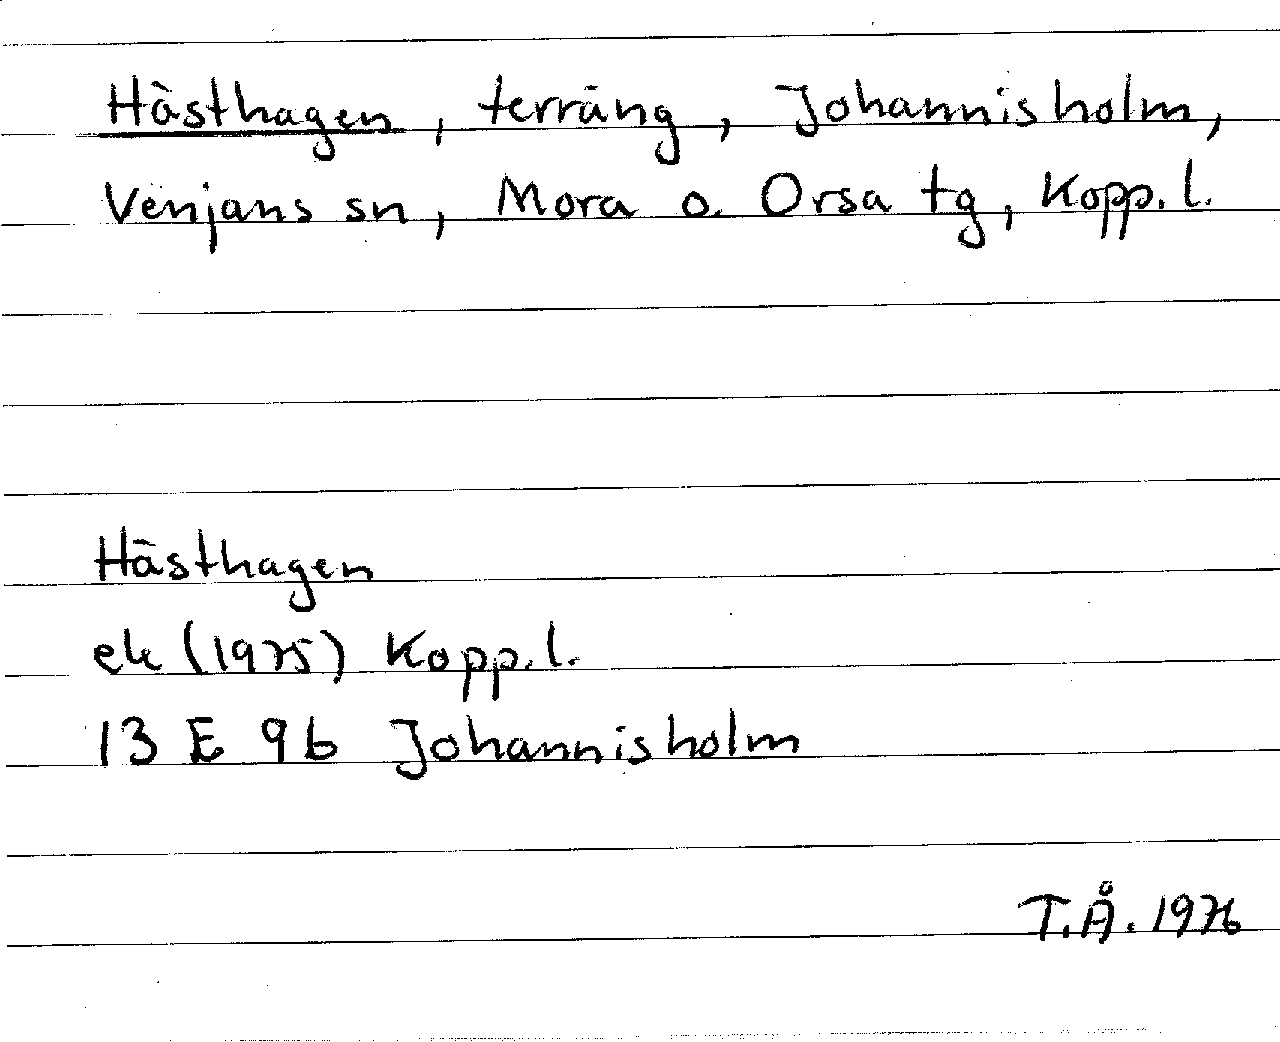 Hästhagen, terräng, Johannisholm,
Venjans sn, Mora o. Orsa tg, Kopp. l.
Hästhagen
ek (1975) Kopp. l.
13 E 9b Johannisholm
T.Å. 1976